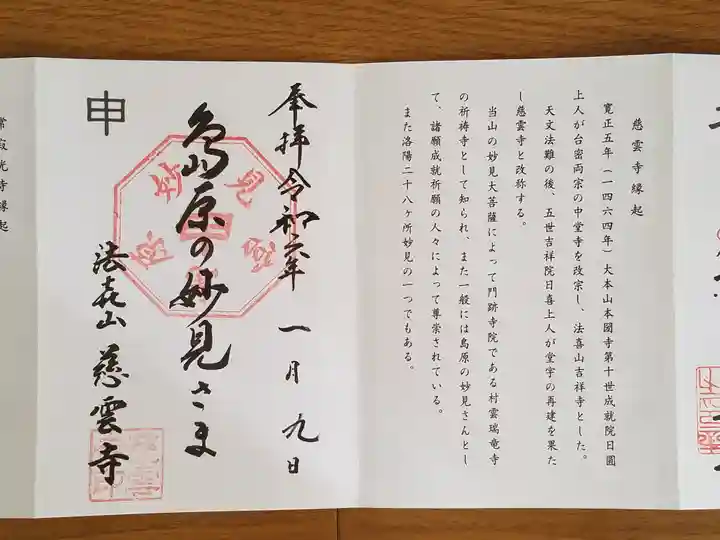 慈雲寺縁起
寛正五年(一四六四年)大本山本國寺第十世成就院日圓
上人が台密両宗の中堂寺を改宗し、法喜山吉祥寺とした。
天文法難の後、五世吉祥院日喜上人が堂宇の再建を果た
し慈雲寺と改称する。
当山の妙見大菩薩によって門跡寺院である村雲瑞竜寺
の祈祷寺として知られ、また一般には島原の妙見さんとし
て、諸願成就祈願の人々によって尊崇されている。
また洛陽二十八ヶ所妙見の一つでもある。
奉拝令和六年一月九日
島原の妙見さま
法㐂山慈雲寺
申
常寂光寺縁起